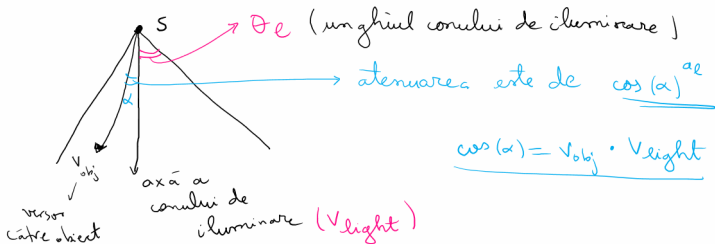 S
θ_l (unghiul conului de iluminare)
atenuarea este de cos(α)^{a_l}
α
cos(α) = v_obj · v_light
v_obj
versor către obiect
axă a conului de iluminare (v_light)